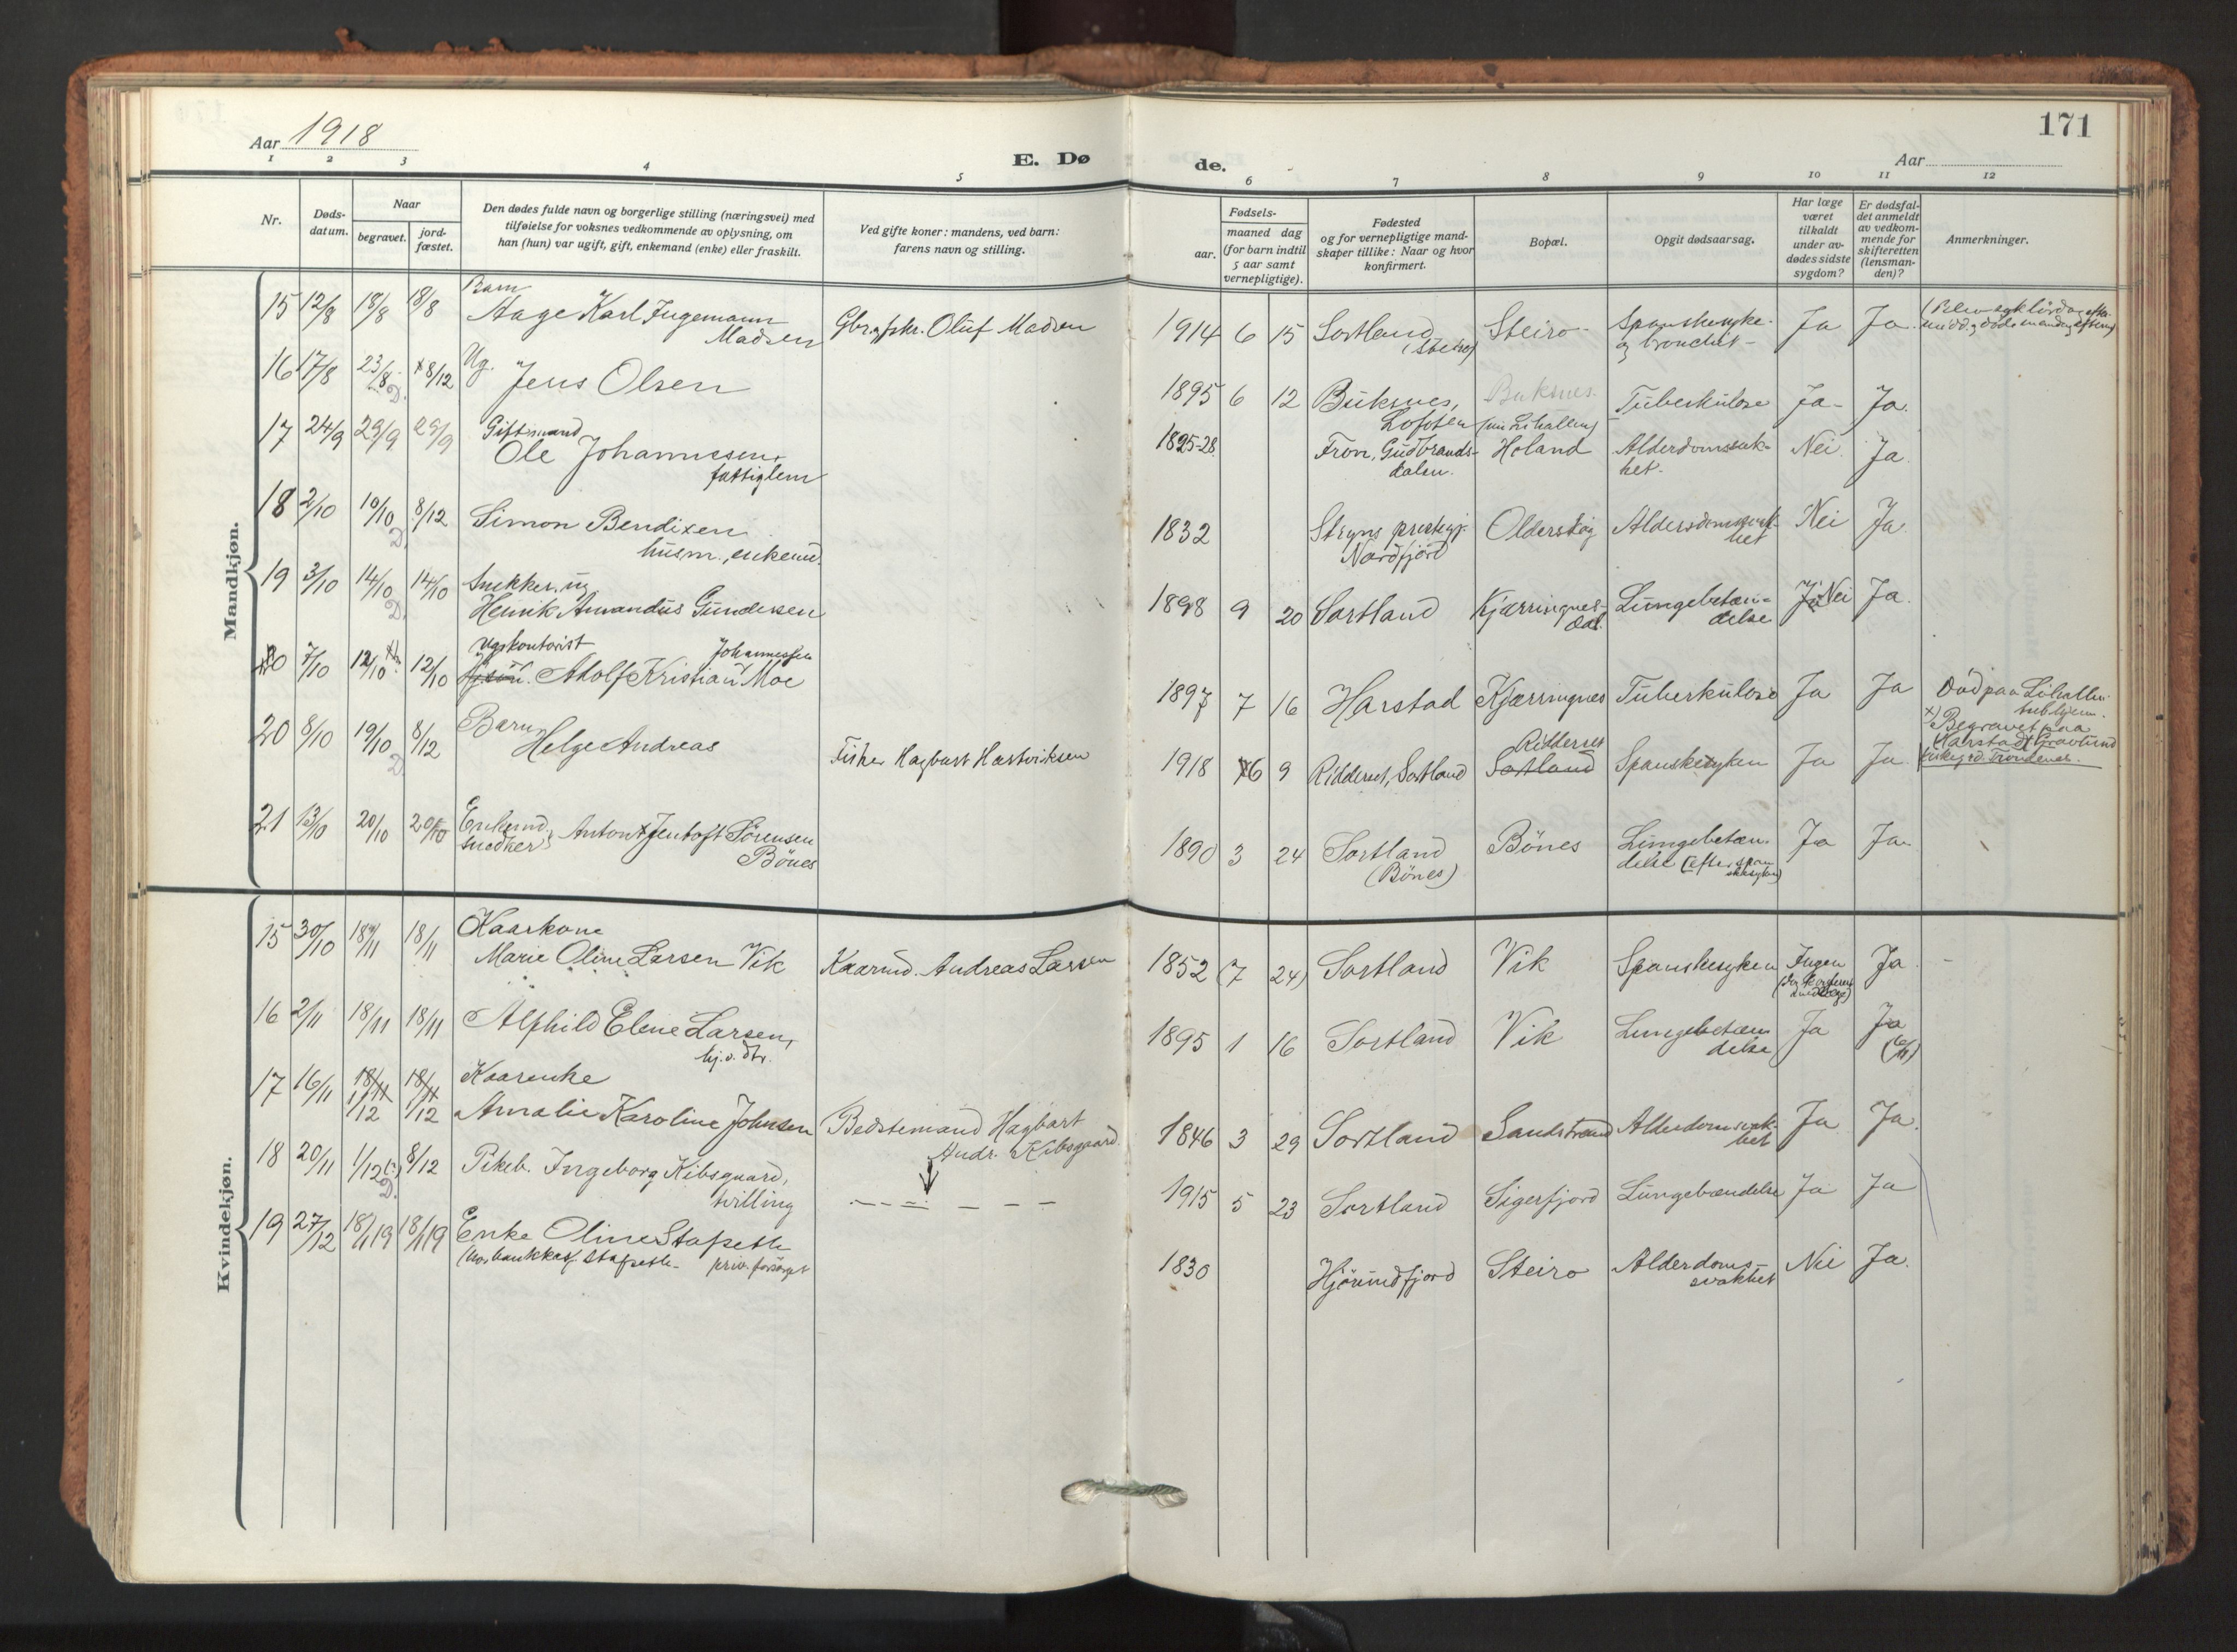 Aar 1918
E. Dø
de.
Aar
171
1 2 3 4 5 6 7 8 9 10 11 12
Nr.
Døds-
datum.
Naar
begravet.
jord-
fæstet.
Den dødes fulde navn og borgerlige stilling (næringsvei) med
tilføielse for voksnes vedkommende av oplysning, om
han (hun) var ugift, gift, enkemand (enke) eller fraskilt.
Ved gifte koner: mandens, ved barn:
farens navn og stilling.
Fødsels-
aar.
maaned dag
(for barn indtil
5 aar samt
vernepligtige).
Fødested
og for vernepligtige mand-
skaper tillike: Naar og hvor
konfirmert.
Bopæl.
Opgit dødsaarsag.
Har læge
været
tilkaldt
under av-
dødes sidste
sygdom?
Er dødsfal-
det anmeldt
av vedkom-
mende for
skifteretten
(lensman-
den)?
Anmerkninger.
Mandkjøn.
15 12/8 18/8 18/8 Barn
Aage Karl Ingemann
Madsen
Gbr. og fskr. Oluf Madsen
1914 6 15 Sortland
(Steiro)
Steiro
Spanskesyke
og bronchit
Ja Ja
16 17/8 23/8 D. x 8/12 Ug.
Jens Olsen
1895 6 12 Buksnes,
Lofoten
Buksnes
Tuberkulose Ja Ja.
17 24/9 29/9 29/9 Giftmand
Ole Johannesen,
fattiglem
1825-28 Fron, Gudbrands-
dalen.
Holand
Alderdomssvak-
het.
Nei Ja
18 2/10 10/10 D. 8/12 Simon Bendixen
husm., enkemd.
1832 Stryns prestegj.
Nordfjord
Alderdomssvak-
het
Nei Ja
19 3/10 14/10 D. 14/10 Snekker, ug
Henrik Amandus Gundersen
1898 9 20 Sortland
Kjærringnes-
dal
Lungebetæn-
delse
Ja Nei Ja.
20 7/10 12/10 x 12/10 Ug kontorist
Johannessen
Adolf Kristian Moe
1897 7 16 Harstad Kjærringnes Tuberkulose Ja Ja
Død paa Lihallen
tub.hjem.
x) Begravet paa
Harstad Gravlund
Trondenes.
20 8/10 19/10 D. 8/12 Barn
Helge Andreas
Fisker Hagbart Hartviksen
1918 6 9 Ridderset, Sortland
Ridderset
Sortland
Spanskesyken Ja Ja
21 13/10 20/10 20/10 Enkemd.
snedker
Anton Jentoft Sörensen
Bönes
1890 3 24 Sortland
(Bönes)
Bönes
Lungebetæn-
delse (efter span
skesyken)
Ja Ja
Kvindekjøn.
15 30/10 18/11 18/11 Kaarkone
Marie Oline Larsen Vik
Kaarmd. Andreas Larsen
1852 (7 24) Sortland Vik Spanskesyken Ingen
Ja
16 2/11 18/11 18/11 Alfhild Elene Larsen,
hj.v. dtr.
1895 1 16 Sortland Vik Lungebetæn
delse
Ja Ja
17 16/11 18/11 1/12 18/11 1/12 Kaarenke
Amalie Karoline Johnsen
1846 3 29 Sortland Sandstrand Alderdomssvak-
het
Ja Ja.
Bedstemand Hagbart
Andr. Kibsgaard
18 20/11 1/12 D. 8/12 Pikeb. Ingeborg Kibsgaard,
tvilling
1915 5 23 Sortland Sigerfjord Lungebændelse Ja Ja
19 27/12 18/1 19 18/1 19 Enke Oline Stafseth
(hos bankkas. Stafseth priv. forsörget
1830 Hjörundfjord Steiro Alderdoms-
svakhet
Nei Ja.